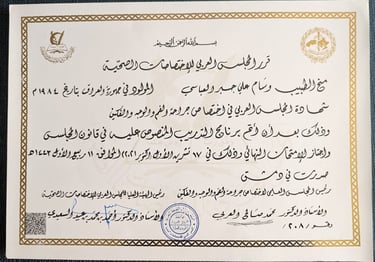 بسم الله الرحمن الرحيم
قرر المجلس العربي للإختصاصات الصحية
منح الطبيب وسام علي جبر العباسي المولود في جمهورية العراق بتاريخ ١٩٨٤ م
شهادة المجلس العربي في اختصاص جراحة الفم والوجه والفكين
وذلك بعد أن أتم برنامج التدريب المنصوص عليه في قانون المجلس
واجتاز الإمتحان النهائي وذلك في ١٧ تشرين الأول أكتوبر ٢٠٢١ م الموافق ١١ ربيع الأول ١٤٤٣ هـ
صدرت في دمشق
رئيس المجلس العلمي لاختصاص جراحة الفم والوجه والفكين
رئيس الهيئة العليا للمجلس العربي للإختصاصات الصحية
والأستاذ الدكتور محمد العربي
والأستاذ الدكتور محمد السعيدي